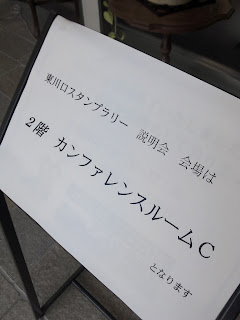 東川口スタンプラリー　説明会　会場は
2階　カンファレンスルームC
となります